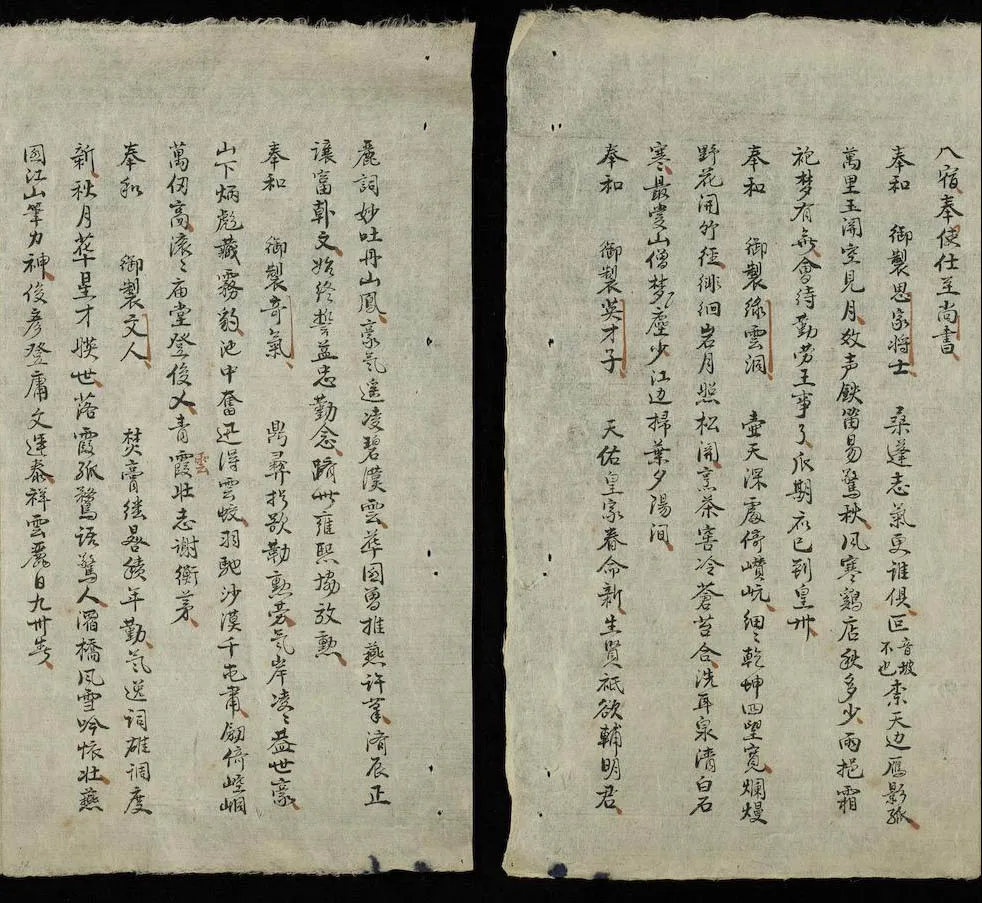 八宿奉使仕至尚書
奉和 御製思家将士 桑蓬志氣更谁俱叵音坡不也柰天边雁影孤
萬里玉関空見月效声鉄笛易驚秋風寒鷄店秋多少雨挹霜
袍梦有無會待勤劳王事了瓜期衣已到皇州
奉和 御製緑雲洞 壶天深處倚巑岏細〻乾坤四望寛爛熳
野花開竹径徘徊岩月照松関烹茶窖冷蒼苔合洗耳泉清白石
寒最爱山僧梦塵少江边掃葉夕陽间
奉和 御製英才子 天佑皇家眷命新生賢祗欲輔明君
麗詞妙吐丹山鳳豪氣遥凌碧漢雲華国曽推燕许業済辰正
讓富韓文始終誓益忠勤念躋世雍熙協放勲
奉和 御製奇氣 鼎彛指欲勒勲劳氣岸凌〻盖世豪
山下炳彪藏霧豹池中奮迅得雲蛟羽馳沙漠千屯粛劔倚崆峒
萬仞高滚〻庙堂登俊乂青霞壮志謝衡茅
雲
奉和 御製文人 焚膏继晷積年勤氣逸词雄调度
新秋月花星才暎世落霞孤鶩语驚人灞橋風雪吟懐壮燕
國江山筆力神俊彦登庸文运泰祥雲麗日九州春